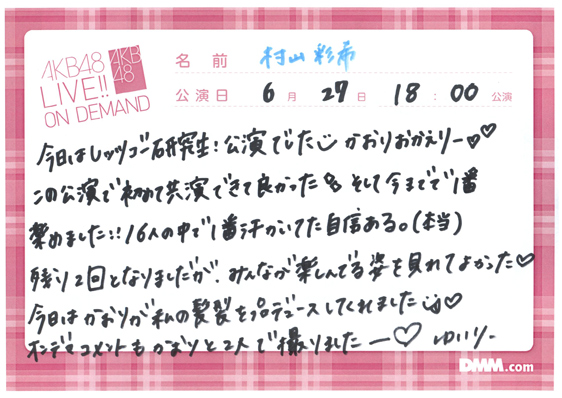 AKB48
LIVE!!
ON DEMAND
AKB
48
名前 村山彩希
公演日 6月27日 18:00公演
今日はレッツゴー研究生!公演でした かおりおかえりー♡♡
この公演で初めて共演できて良かった そして今までで1番
楽めました!!16人の中で1番汗かいてた自信ある。(本当)
残り2回となりましたが、みんなが楽しんでる姿を見れてよかった♡
今日はかおりが私の髪型をプロデュースしてくれました♡
オンデマコメントもかおりと2人で撮りましたー♡ ゆいりー
DMM.com